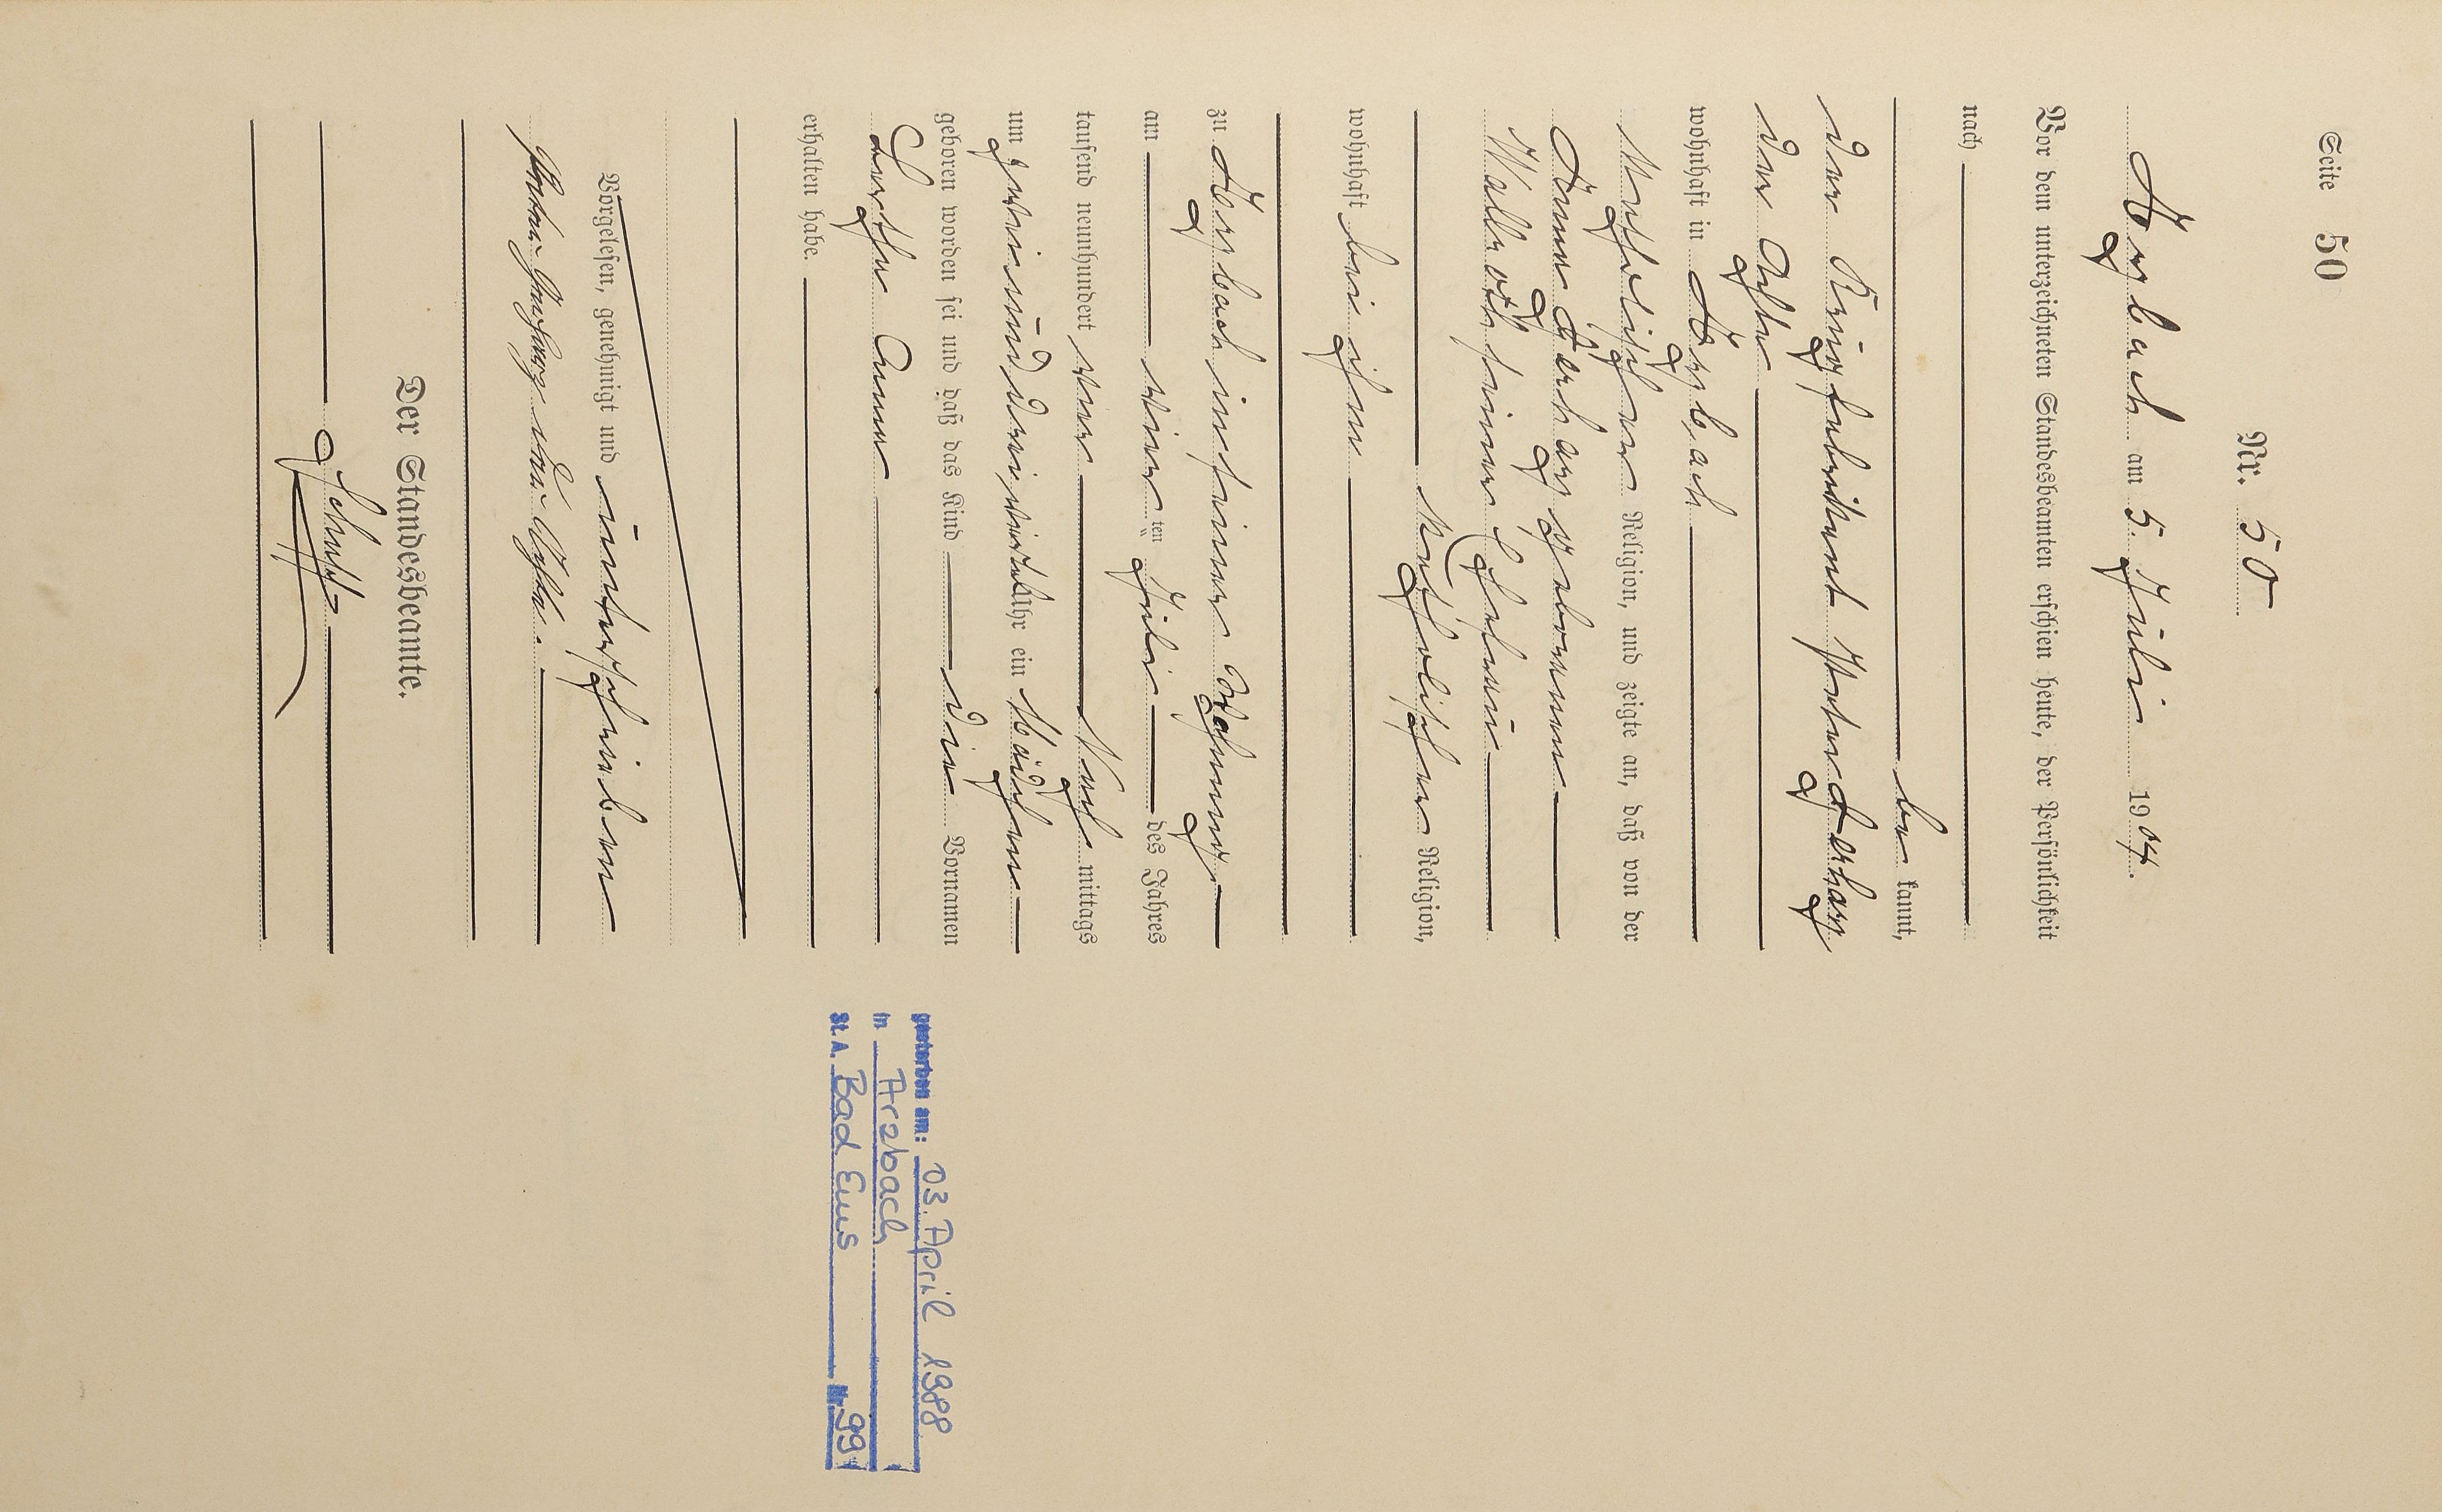 Seite 50
Nr. 50
Arzbach am 5. Juli 1904.
Vor dem unterzeichneten Standesbeamten erschien heute, der Persönlichkeit
nach
be kannt,
der Krugfabrikant Peter Gerharz
der Achte
wohnhaft in Arzbach
katholischer Religion, und zeigte an, daß von der
Anna Gerharz geborenen
seiner Ehefrau
katholischer Religion,
wohnhaft bei ihm
zu Arzbach in seiner Wohnung
am vierten Juli des Jahres
tausend neunhundert vier Nach mittags
um zwei und dreiviertel Uhr ein Mädchen
geboren worden sei und daß das Kind die Vornamen
Anna
erhalten habe.
Vorgelesen, genehmigt und unterschrieben
Peter Gerharz der Achte.
Der Standesbeamte.
gestorben am: 03. April 1988
in Arzbach
St. A. Bad Ems Nr. 99